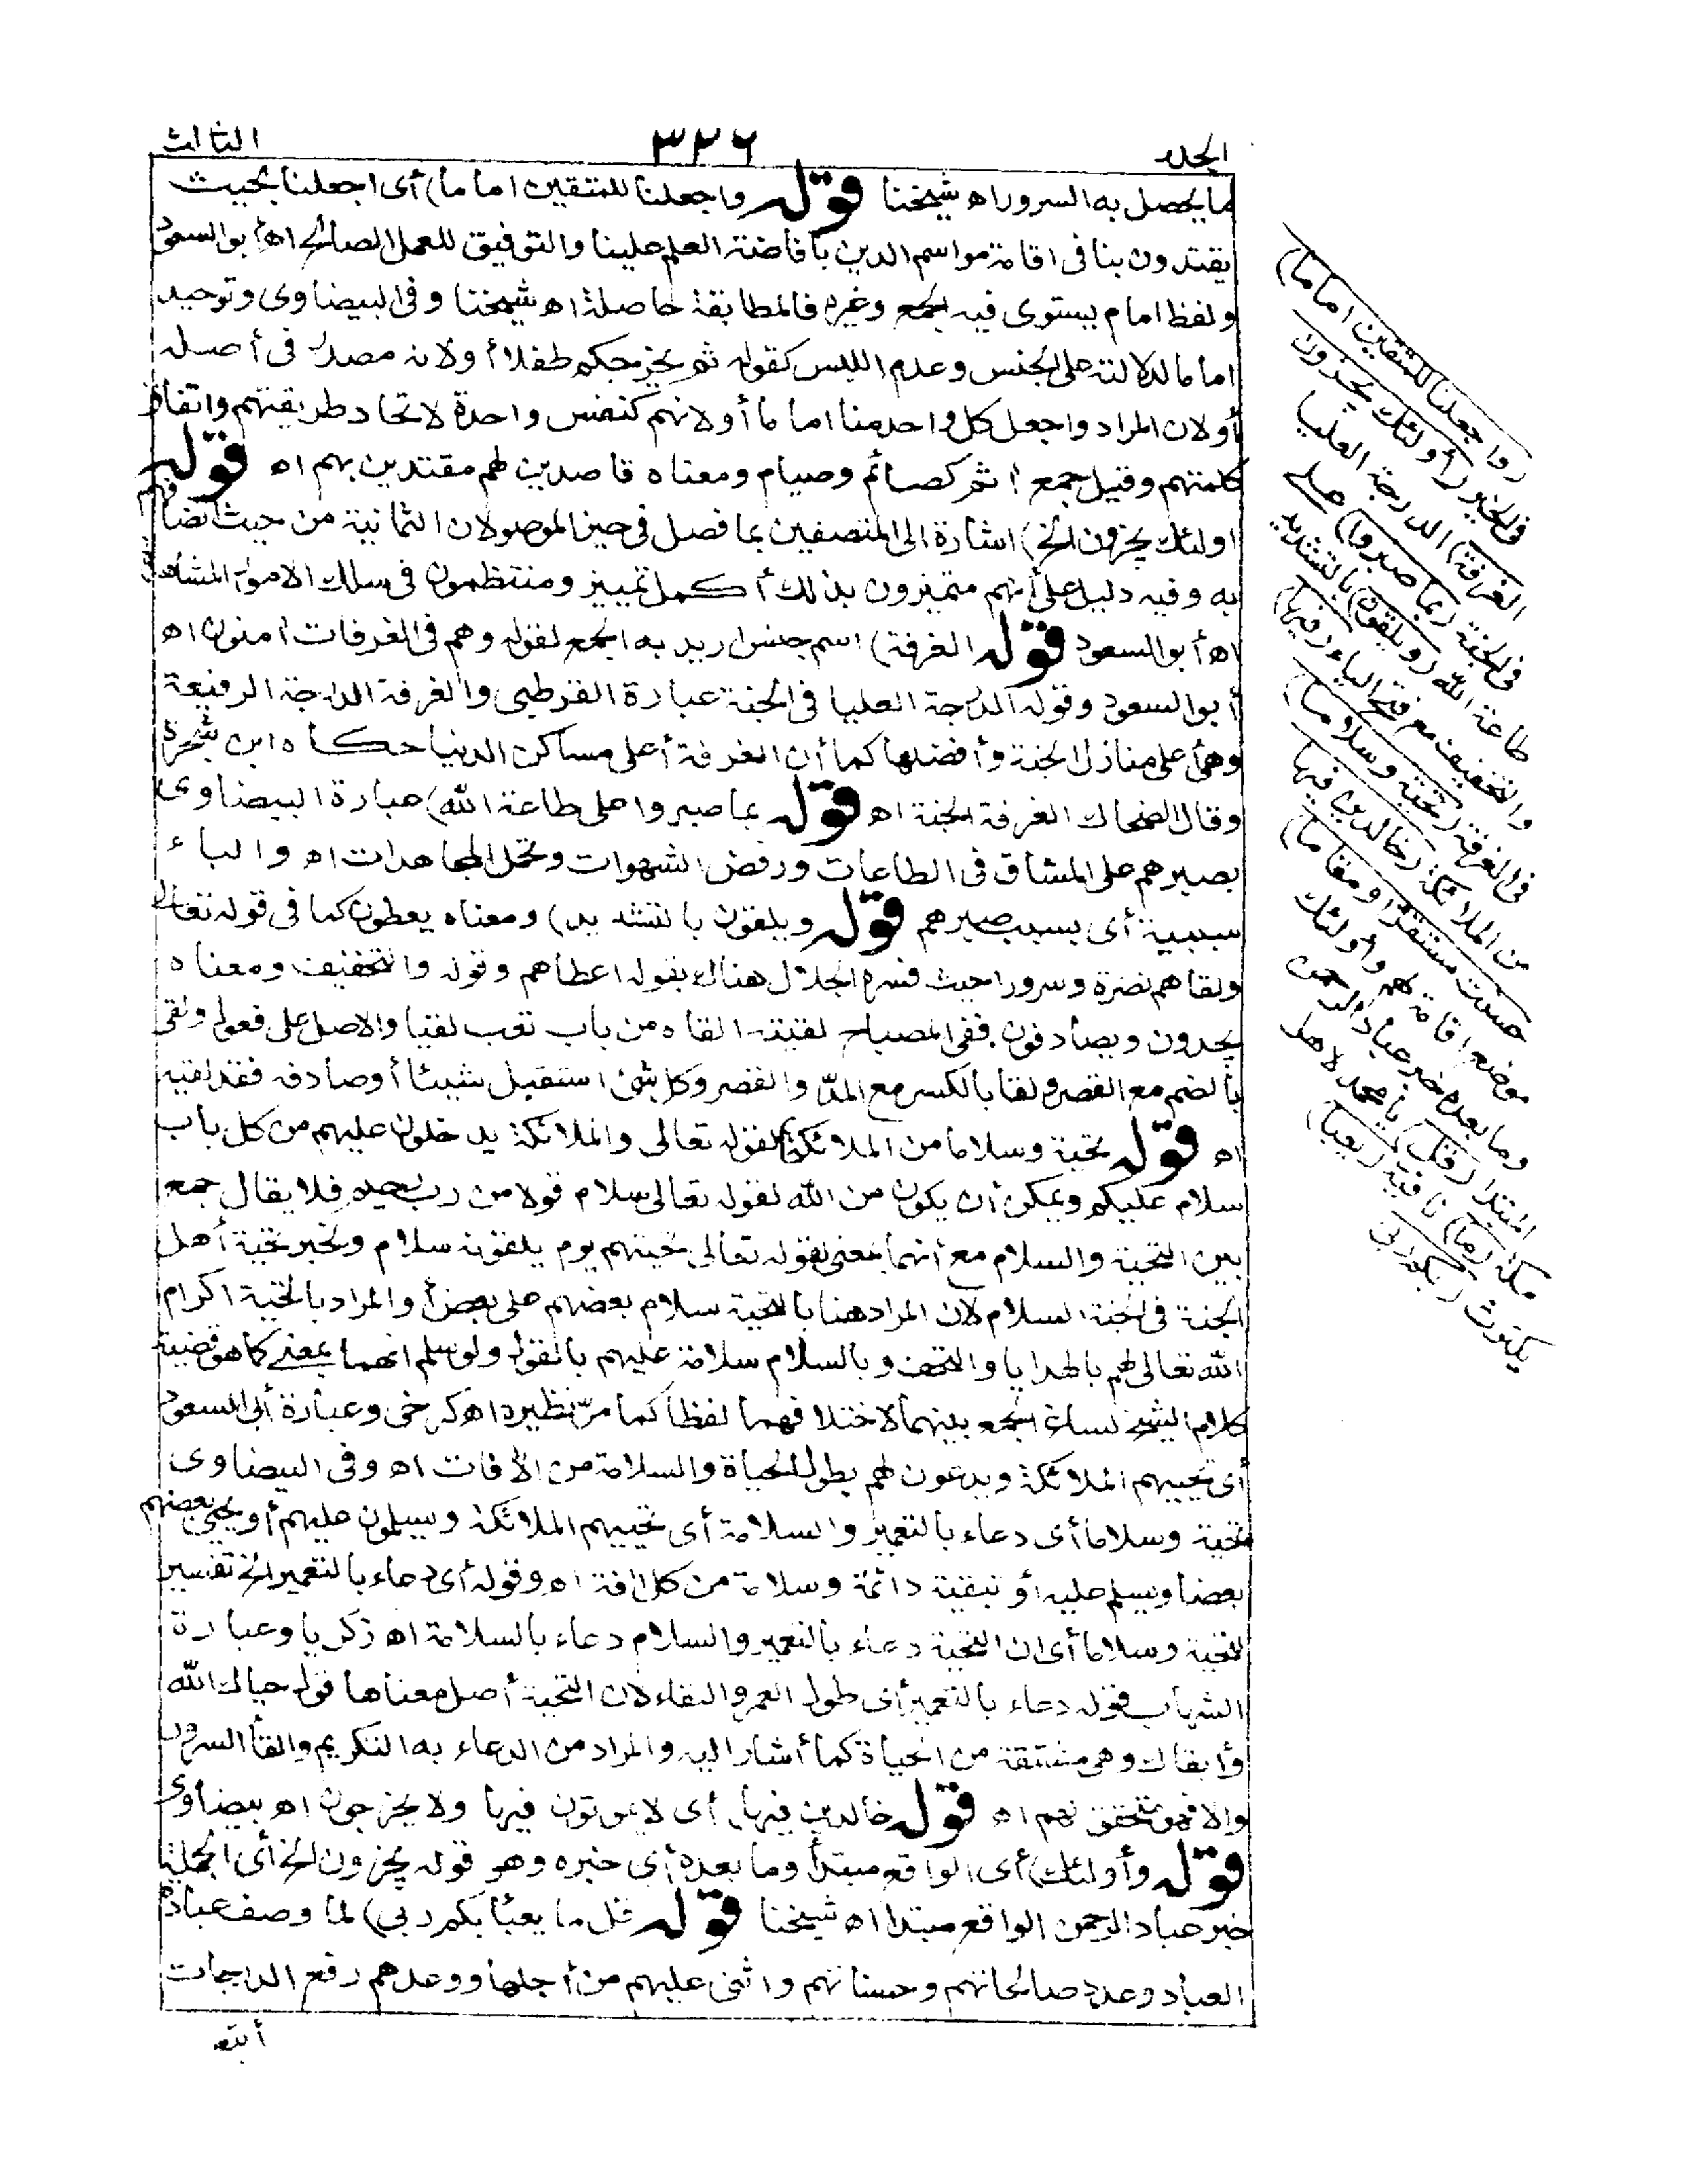 الجلد ٣٢٦ الثالث
ما يحصل به السرور اه شيخنا قوله واجعلنا للمتقين اماما) أى اجعلنا بحيث
يقتدون بنا فى اقامة مواسم الدين بافاضة العلم علينا والتوفيق للعمل الصالح اه أبو السعود
ولفظ امام يستوى فيه الجمع وغيره فالمطابقة حاصلة اه شيخنا وفى البيضاوى وتوحيد
اماما لدلالته على الجنس وعدم اللبس كقوله ثم يخرجكم طفلا أ ولانه مصدر فى أصله
أو لان المراد واجعل كل واحد منا اماما أو لانهم كنفس واحدة لاتحاد طريقتهم واتفاق
كلمتهم وقيل جمع آثم كصائم وصيام ومعناه قاصدين لهم مقتدين بهم اه قوله
اولئك يجزون الخ) اشارة الى المتصفين بما فصل فى حيز الموصولان الثمانية من حيث اتصافهم
به وفيه دليل على أنهم متميزون بذلك أكمل تمييز ومنتظمون فى سلك الامور المشاهدة
اه أبو السعود قوله الغرفة) اسم جنس اريد به الجمع لقوله وهم فى الغرفات آمنون اه
أبو السعود وقوله الدرجة العليا فى الجنة عبارة القرطبى والغرفة الدرجة الرفيعة
وهى أعلى منازل الجنة وأفضلها كما أن الغرفة أعلى مساكن الدنيا حكاه ابن شجرة
وقال الضحاك الغرفة الجنة اه قوله بما صبروا على طاعة الله) عبارة البيضاوى
بصبرهم على المشاق فى الطاعات ورفض الشهوات وتحمل المجاهدات اه والباء
سببية أى بسبب صبرهم قوله ويلقون بالتشديد) ومعناه يعطون كما فى قوله تعالى
ولقاهم نضرة وسرورا حيث فسره الجلال هناك بقوله اعطاهم وقوله والتخفيف ومعناه
يجدون ويصادفون ففى المصباح لقيته القاه من باب تعب لقيا والاصل على فعول ولقى
بالضم مع القصر ولقا بالكسر مع المدّ والقصر وكل شئ استقبل شيئا أو صادفه فقد لقيه
اه قوله تحية وسلاما من الملائكة) لقوله تعالى والملائكة يدخلون عليهم من كل باب
سلام عليكم ويمكن أن يكون من الله لقوله تعالى سلام قولا من رب رحيم فلا يقال جمع
بين التحية والسلام مع أنهما بمعنى لقوله تعالى تحيتهم يوم يلقونه سلام ولخبر تحية أهل
الجنة فى الجنة السلام لان المراد هنا بالتحية سلام بعضهم على بعض أ والمراد بالتحية اكرام
الله تعالى لهم بالهدايا والتحف وبالسلام سلامه عليهم بالقول ولو سلم انهما بمعنى كما هو قضية
كلام الشيخ لساغ الجمع بينهما لاختلافهما لفظا كما مرّ نظيره اه كرخى وعبارة أبى السعود
أى تحييهم الملائكة ويدعون لهم بطول الحياة والسلامة من الآفات اه وفى البيضاوى
تحية وسلاما أى دعاء بالتعمير والسلامة أى تحييهم الملائكة ويسلمون عليهم أو يحيى بعضهم
بعضا ويسلم عليه أو تبقية دائمة وسلامة من كل آفة اه وقوله أى دعاء بالتعمير الخ تفسير
لتحية وسلاما أى ان التحية دعاء بالتعمير والسلام دعاء بالسلامة اه زكريا وعبارة
الشهاب قوله دعاء بالتعمير أى طول العمر والبقاء لان التحية أصل معناها قول حياك الله
وأبقاك وهى مشتقة من الحياة كما أشار اليه والمراد من الدعاء به التكريم والقاء السرور
والا فهو متحقق لهم اه قوله خالدين فيها) أى لا يموتون فيها ولا يخرجون اه بيضاوى
قوله وأولئك) أى الواقع مبتدأ وما بعده أى خبره وهو قوله يجزون الخ أى الجملة
خبر عباد الرحمن الواقع مبتدا اه شيخنا قوله قل ما يعبأ بكم ربي) لما وصف عباده
العباد وعدد صالحاتهم وحسناتهم واثنى عليهم من أجلها ووعدهم رفع الدرجات
أتبعه
(واجعلنا للمتقين اماما)
فى الخير (أولئك يجزون
الغرفة) الدرجة العليا
فى الجنة (بما صبروا) على
طاعة الله (ويلقون) بالتشديد
والتخفيف مع فتح الياء (فيها)
فى الغرفة (تحية وسلاما)
من الملائكة (خالدين فيها
حسنت مستقرا ومقاما)
موضع اقامة لهم وأولئك
وما بعده خبر عباد الرحمن
المبتدا (قل) يا محمد لاهل
مكة (ما) نافية (يعبأ)
يكترث (بكم ربى